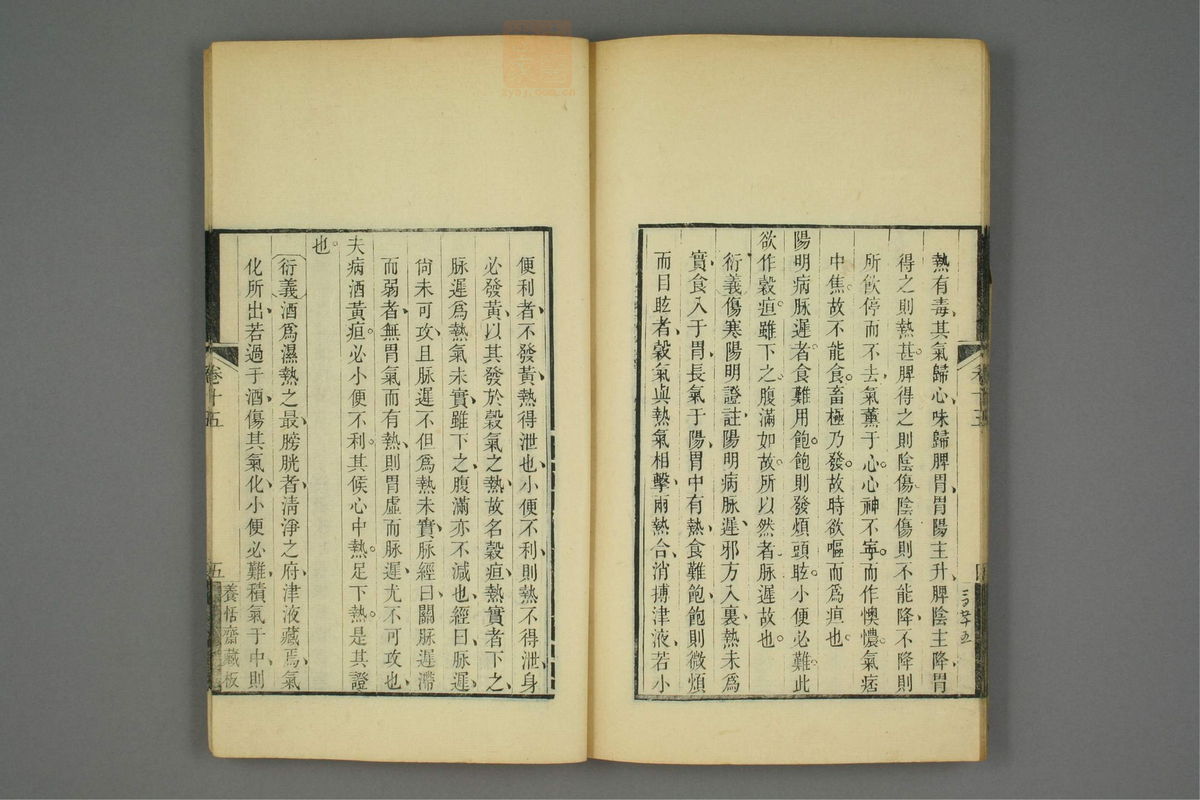 熱有毒其氣歸心味歸脾胃胃陽主升脾陰主降胃
得之則熱甚脾得之則陰傷陰傷則不能降不降則
所飲停而不去氣薰于心心神不寧而作懊憹氣痞
中焦故不能食畜極乃發故時欲嘔而爲疸也
陽明病脉遲者食難用飽飽則發煩頭眩小便必難此
欲作穀疸雖下之腹滿如故所以然者脉遲故也
衍義傷寒陽明證註陽明病脉遲邪方入裏熱未爲
實食入于胃長氣于陽胃中有熱食難飽飽則微煩
而目眩者穀氣與熱氣相擊兩熱合消搏津液若小
三百廿五
便利者不發黃熱得泄也小便不利則熱不得泄身
必發黃以其發於穀氣之熱故名穀疸熱實者下之
脉遲爲熱氣未實雖下之腹滿亦不減也經曰脉遲
尚未可攻且脉遲不但爲熱未實脉經曰關脉遲滯
而弱者無胃氣而有熱則胃虛而脉遲尤不可攻也
夫病酒黃疸必小便不利其候心中熱足下熱是其證
也
衍義酒爲濕熱之最膀胱者清淨之府津液藏焉氣
化所出若過于酒傷其氣化小便必難積氣于中則
卷十五
五
養恬齋藏板